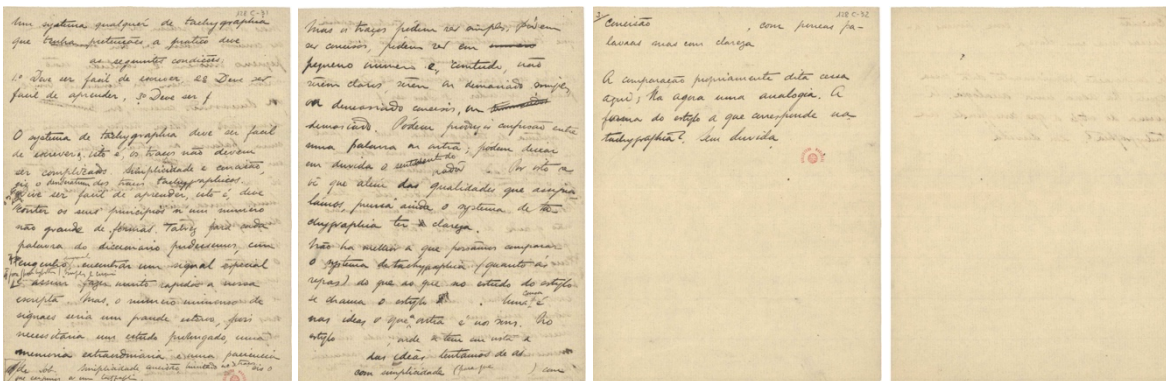 118 C-31
Um systema qualquer de tachygraphia
que tenha pretenções a pratico deve
as seguintes condições.
1.º Deve ser facil de escrever, 2.º Deve ser
facil de aprender, 3.º Deve ser f
O systema de tachygraphia deve ser facil
de escrever, isto é, os traços não devem
ser complicados. Simplicidade e concisão,
eis o desideratum dos traços tachygraphicos.
Deve ser facil de aprender, isto é, deve
conter os seus principios n'um numero
não grande de fórmas. Talvez para cada
palavra do diccionario pudessemos, com
engenho, encontrar um signal especial
e assim fazer muito rapida a nossa
escripta. Mas, o numero immenso de
signaes seria um grande estorvo, pois
necessitaria um estudo prolongado, uma
memoria extraordinaria e uma paciencia
simplicidade
118 C-32
Mas os traços podem ser simples, pódem
ser concisos, podem ser em
pequeno numero e, comtudo, não
serem claros, serem ou demasiado simples,
ou demasiado concisos, ou
demasiado. Pódem produzir confusão entre
uma palavra ou outra; podem deixar
em duvida o
Por isto se
vê que alem das qualidades que assigna-
lamos, precisa ainda o systema de ta-
chygraphia ter a clareza.
Não ha melhor a que possamos comparar
o systema de tachygraphia (quanto ás
regras) do que ao que no estudo do estylo
se chama o estylo. Uma é
nas ideas o que a outra é nos sons. No
estylo
das ideas tentamos de
com simplicidade (para que) com
3/
concisão, com poucas pa-
lavras mas com clareza
A comparação propriamente dita cessa
aqui; Ha agora uma analogia. A
fórma do estylo a que corresponde na
tachygraphia? Sem duvida